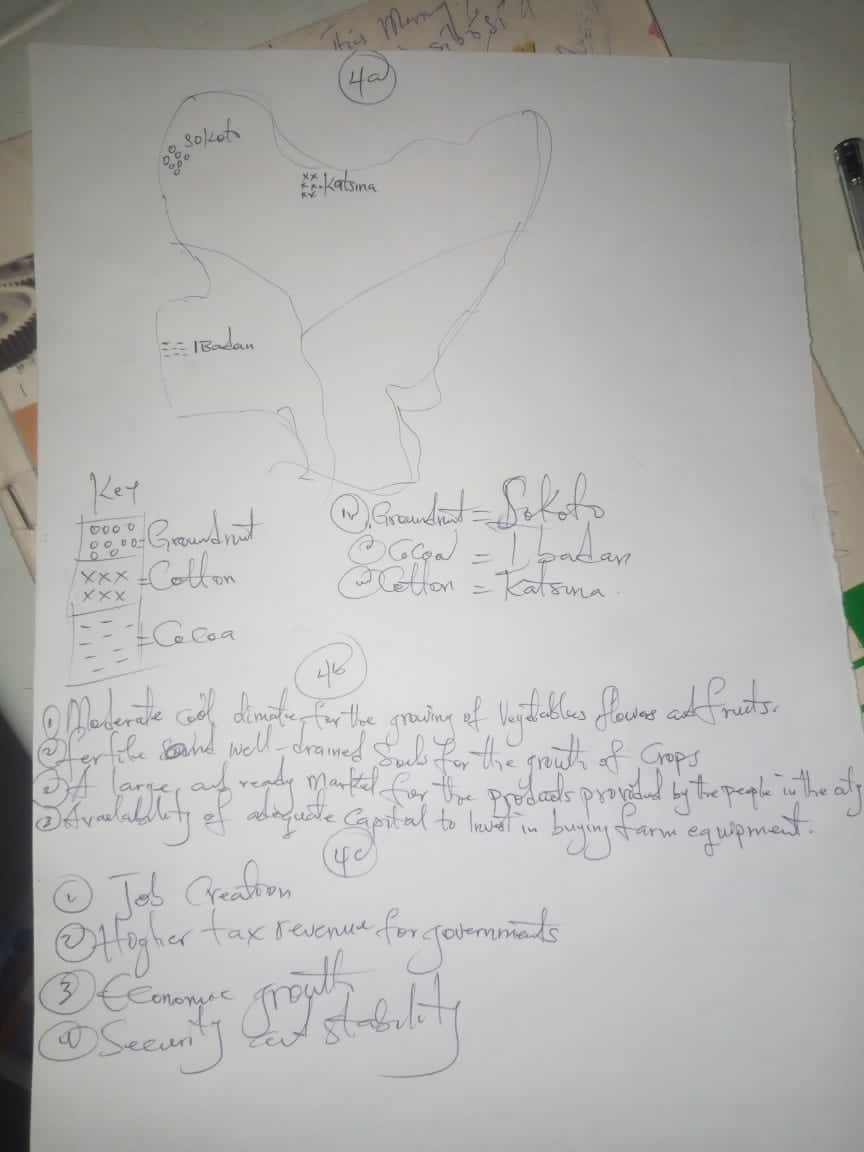 this
4a
Sokoto
xx
xx Katsina
xx
IBadan
Key
Groundnut
xxx
xxx = Cotton
= Cocoa
iv. Groundnut = Sokoto
Cocoa = Ibadan
Cotton = Katsina.
4b
① Moderate cool climate for the growing of Vegetables flowers and fruits.
② Fertile and well-drained Soils for the growth of Crops
A large and ready Market for the products provided by the people in the city
③ Availability of adequate Capital to Invest in buying farm equipment.
4c
① Job Creation
② Higher tax revenue for governments
③ Economic growth
④ Security and stability